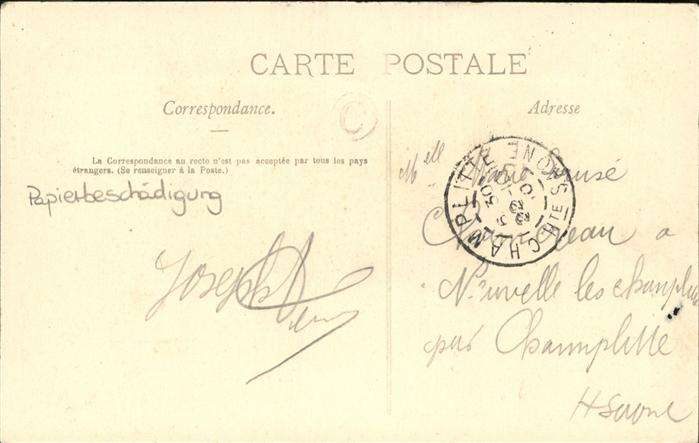 CARTE POSTALE
Correspondance.
Adresse
La Correspondance au recto n'est pas acceptée par tous les pays
étrangers. (Se renseigner à la Poste.)
Papierbeschädigung
Joseph
Mell
CHAMPLITTE
HTE SAONE
à
Neuvelle les champli
par Champlitte
H Saone